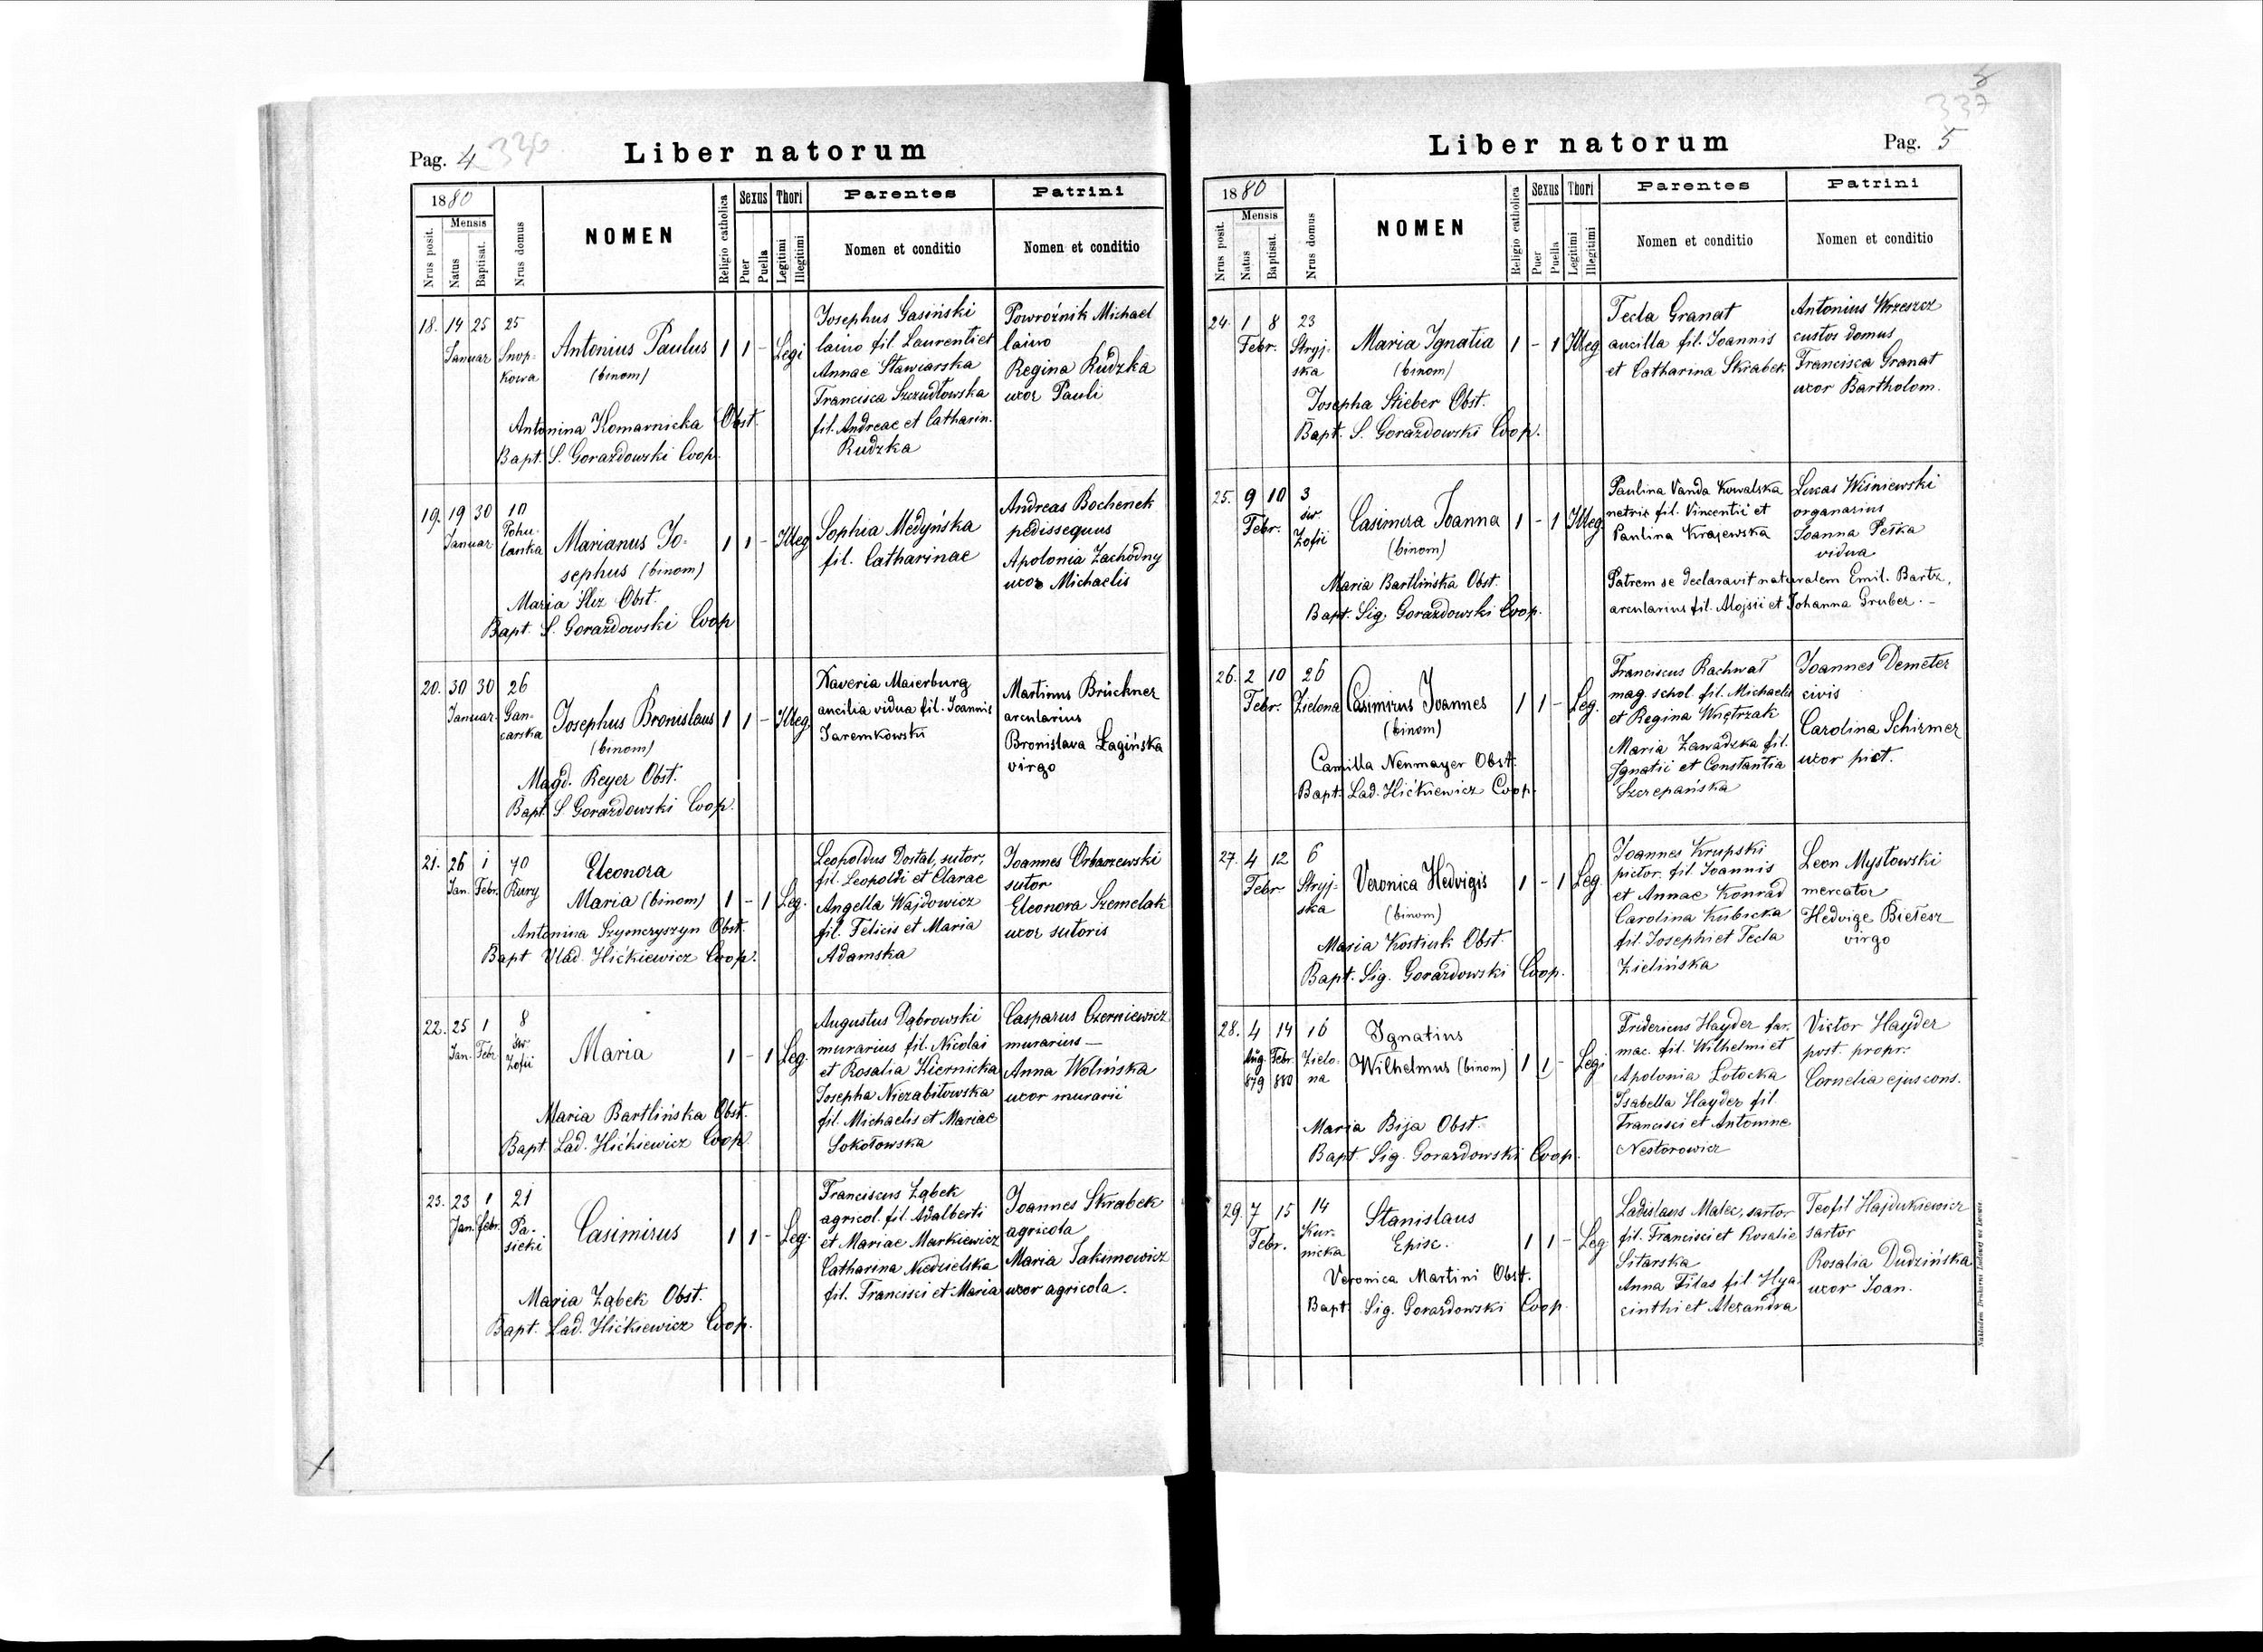 Pag. 4 336
Liber natorum
1880
Mensis
Nrus posit.
Natus
Baptisat.
Nrus domus
NOMEN
Religio catholica
Sexus
Puer
Puella
Thori
Legitimi
Illegitimi
Parentes
Nomen et conditio
Patrini
Nomen et conditio
18. 14 25 25
Januar Snop-
kowa
Antonius Paulus 1 1 - Legi
(binom)
Antonina Komarnicka Obst.
Bapt. S. Gorazdowski Coop.
Josephus Gasiński
laino fil. Laurenti et
Annae Stawiarska
Francisca Szczudłowska
fil. Andreae et Catharin.
Rudzka
Powroźnik Michael
laino
Regina Rudzka
uxor Pauli
19. 19 30 10
Januar Pohu-
lanka
Marianus Jo- 1 1 - Illeg
sephus (binom)
Maria Slez Obst.
Bapt. S. Gorazdowski Coop
Sophia Medyńska
fil. Catharinae
Andreas Bochenek
pedissequus
Apolonia Zachodny
uxor Michaelis
20. 30 30 26
Januar. Gan-
carska
Josephus Bronislaus 1 1 - Illeg
(binom)
Magd. Beyer Obst.
Bapt. S. Gorazdowski Coop.
Xaveria Maierburg
ancilia vidua fil. Joannis
Jaremkowski
Martinus Brückner
arcularius
Bronislava Łagińska
virgo
21. 26 1 70
Jan. Febr. Rury
Eleonora
Maria (binom) 1 - 1 Leg.
Antonina Szymczyszyn Obst.
Bapt Vlad. Hićkiewicz Coop.
Leopoldus Dostal, sutor,
fil. Leopoldi et Clarae
Angella Wajdowicz
fil. Felicis et Maria
Adamska
Joannes Orbaszewski
sutor
Eleonora Szemelak
uxor sutoris
22. 25 1 8
Jan. Febr św.
Zofii
Maria 1 - 1 Leg.
Maria Bartlińska Obst.
Bapt. Lad. Hićkiewicz Coop
Augustus Dąbrowski
murarius fil. Nicolai
et Rosalia Kiernicka
Josepha Niezabitowska
fil. Michaelis et Mariae
Sokołowska
Casparus Czerniewicz
murarius —
Anna Wolińska
uxor murarii
23. 23 1 21
Jan. febr. Pa-
sieki
Casimirus 1 1 - Leg.
Maria Ząbek Obst.
Bapt. Lad. Hićkiewicz Coop.
Franciscus Ząbek
agricol. fil. Adalberti
et Mariae Markiewicz
Catharina Niedzielska
fil. Francisci et Maria
Joannes Skrabek
agricola
Maria Jakimowicz
uxor agricola.
5
337
Liber natorum
Pag. 5
1880
Mensis
Nrus posit.
Natus
Baptisat.
Nrus domus
NOMEN
Religio catholica
Sexus
Puer
Puella
Thori
Legitimi
Illegitimi
Parentes
Nomen et conditio
Patrini
Nomen et conditio
24. 1 8 23
Febr. Stryj-
ska
Maria Ignatia 1 - 1 Illeg
(binom)
Josepha Stieber Obst.
Bapt. S. Gorazdowski Coop.
Tecla Granat
ancilla fil. Joannis
et Catharina Skrabek
Antonius Wrzeszcz
custos domus
Francisca Granat
uxor Bartholom.
25. 9 10 3
Febr. św.
Zofii
Casimira Joanna 1 - 1 Illeg.
(binom)
Maria Bartlińska Obst.
Bapt. Sig. Gorazdowski Coop.
Paulina Vanda Kowalska
netrix fil. Vincentii et
Paulina Krajewska
Lucas Wiśniewski
organarius
Joanna Peška
vidua
Patrem se declaravit naturalem Emil. Bartz,
arcularius fil. Alojsii et Johanna Gruber. -
26. 2 10 26
Febr. Zielona
Casimirus Joannes 1 1 - Leg.
(binom)
Camilla Nenmayer Obst.
Bapt. Lad. Hićkiewicz Coop.
Franciscus Rachwał
mag. schol. fil. Michaelis
et Regina Wnętrzak
Maria Zawadzka fil.
Ignatii et Constantia
Szczepańska
Joannes Demeter
civis
Carolina Schirmer
uxor pict.
27. 4 12 6
Febr Stryj-
ska
Veronica Hedvigis 1 - 1 Leg.
(binom)
Maria Kostiuk Obst.
Bapt. Sig. Gorazdowski Coop.
Joannes Krupski
pictor. fil. Joannis
et Annae Konrad
Carolina Kubicka
fil. Josephi et Tecla
Zielińska
Leon Mysłowski
mercator
Hedvige Biełesz
virgo
28. 4 14 16
Aug. Febr. Zielo-
879 880 na
Ignatius
Wilhelmus (binom) 1 1 - Legi
Maria Bija Obst.
Bapt. Sig. Gorazdowski Coop.
Fridericus Hayder far-
mac. fil. Wilhelmi et
Apolonia Łotocka
Isabella Hayder fil.
Francisci et Antonine
Nestorowicz
Victor Hayder
post. propr.
Cornelia ejus cons.
29. 7 15 14
Febr. Kur-
nicka
Stanislaus
Episc. 1 1 - Leg
Veronica Martini Obst.
Bapt Sig. Gorazdowski Coop.
Ladislaus Malec, sartor
fil. Francisci et Rosalie
Sitarska
Anna Filas fil. Hya-
cinthi et Alexandra
Teofil Hajdukiewicz
sartor
Rosalia Dudzińska
uxor Joan.